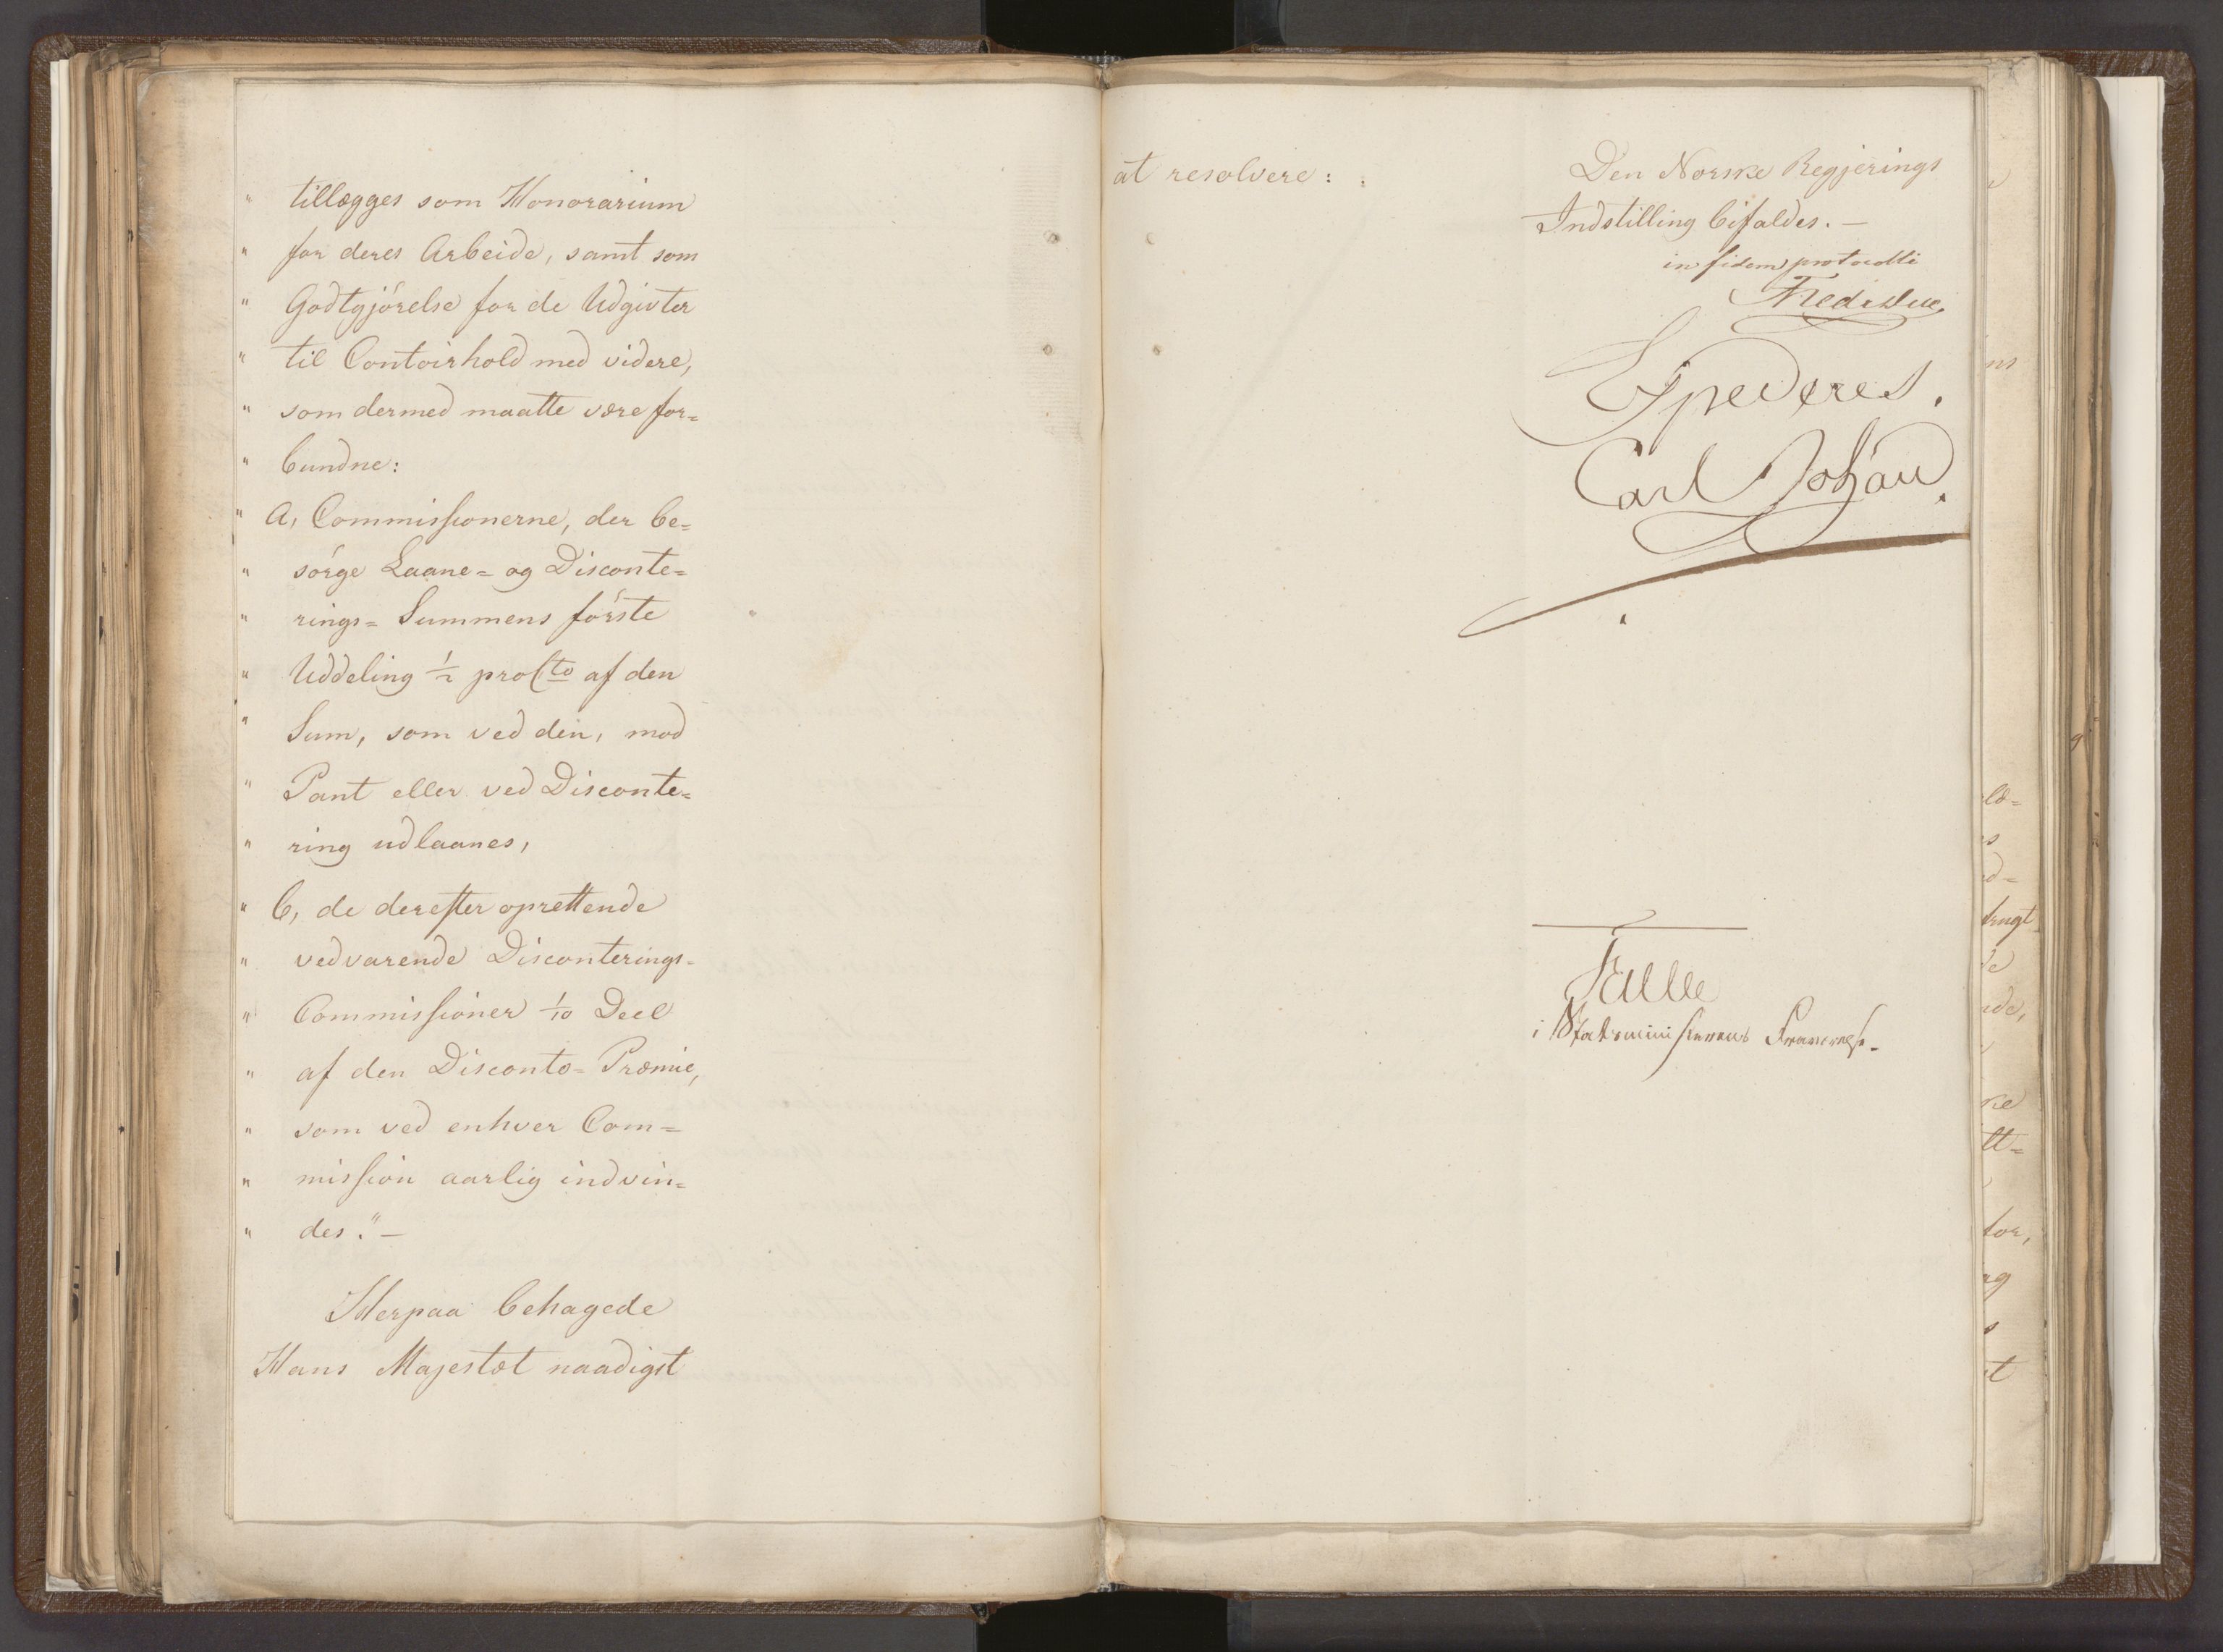 " tillægges som Honorarium
" for deres Arbeide, samt som
" Godtgjörelse for de Udgivter
" til Contoirhold med videre,
" som dermed maatte være for=
" bundne:
" a, Commissionerne, der be=
" sörge Laane= og Disconte=
" rings= Summens förste
" Uddeling ½ proCto af den
" Sum, som ved dem, mod
" Pant eller ved Disconte=
" ring udlaanes,
" b, de derefter oprettende
" vedvarende Disconterings=
" Commissioner 1/10 Deel
" af den Disconto= Præmie,
" som ved enhver Com=
" mission aarlig indvin=
" des." —
Herpaa behagede
Hans Majestæt naadigst
at resolvere:
Den Norske Regjerings
Indstilling bifaldes. —
in fidem protocolli
Expederes.
Carl Johan
i Statsministerens Fraværelse.
læ=
tt=
for,